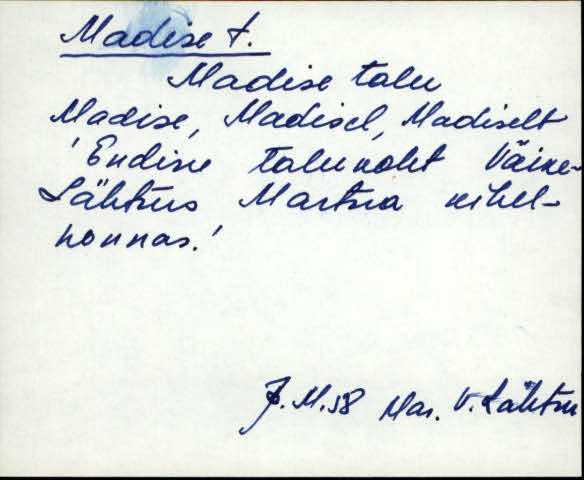 Madise t.
Madise talu
Madise, Madisel, Madiselt
'Endine talukoht Väike-
Lähtrus Martna kihel-
konnas.'
J. M. 58 Mar. V. Lähtru